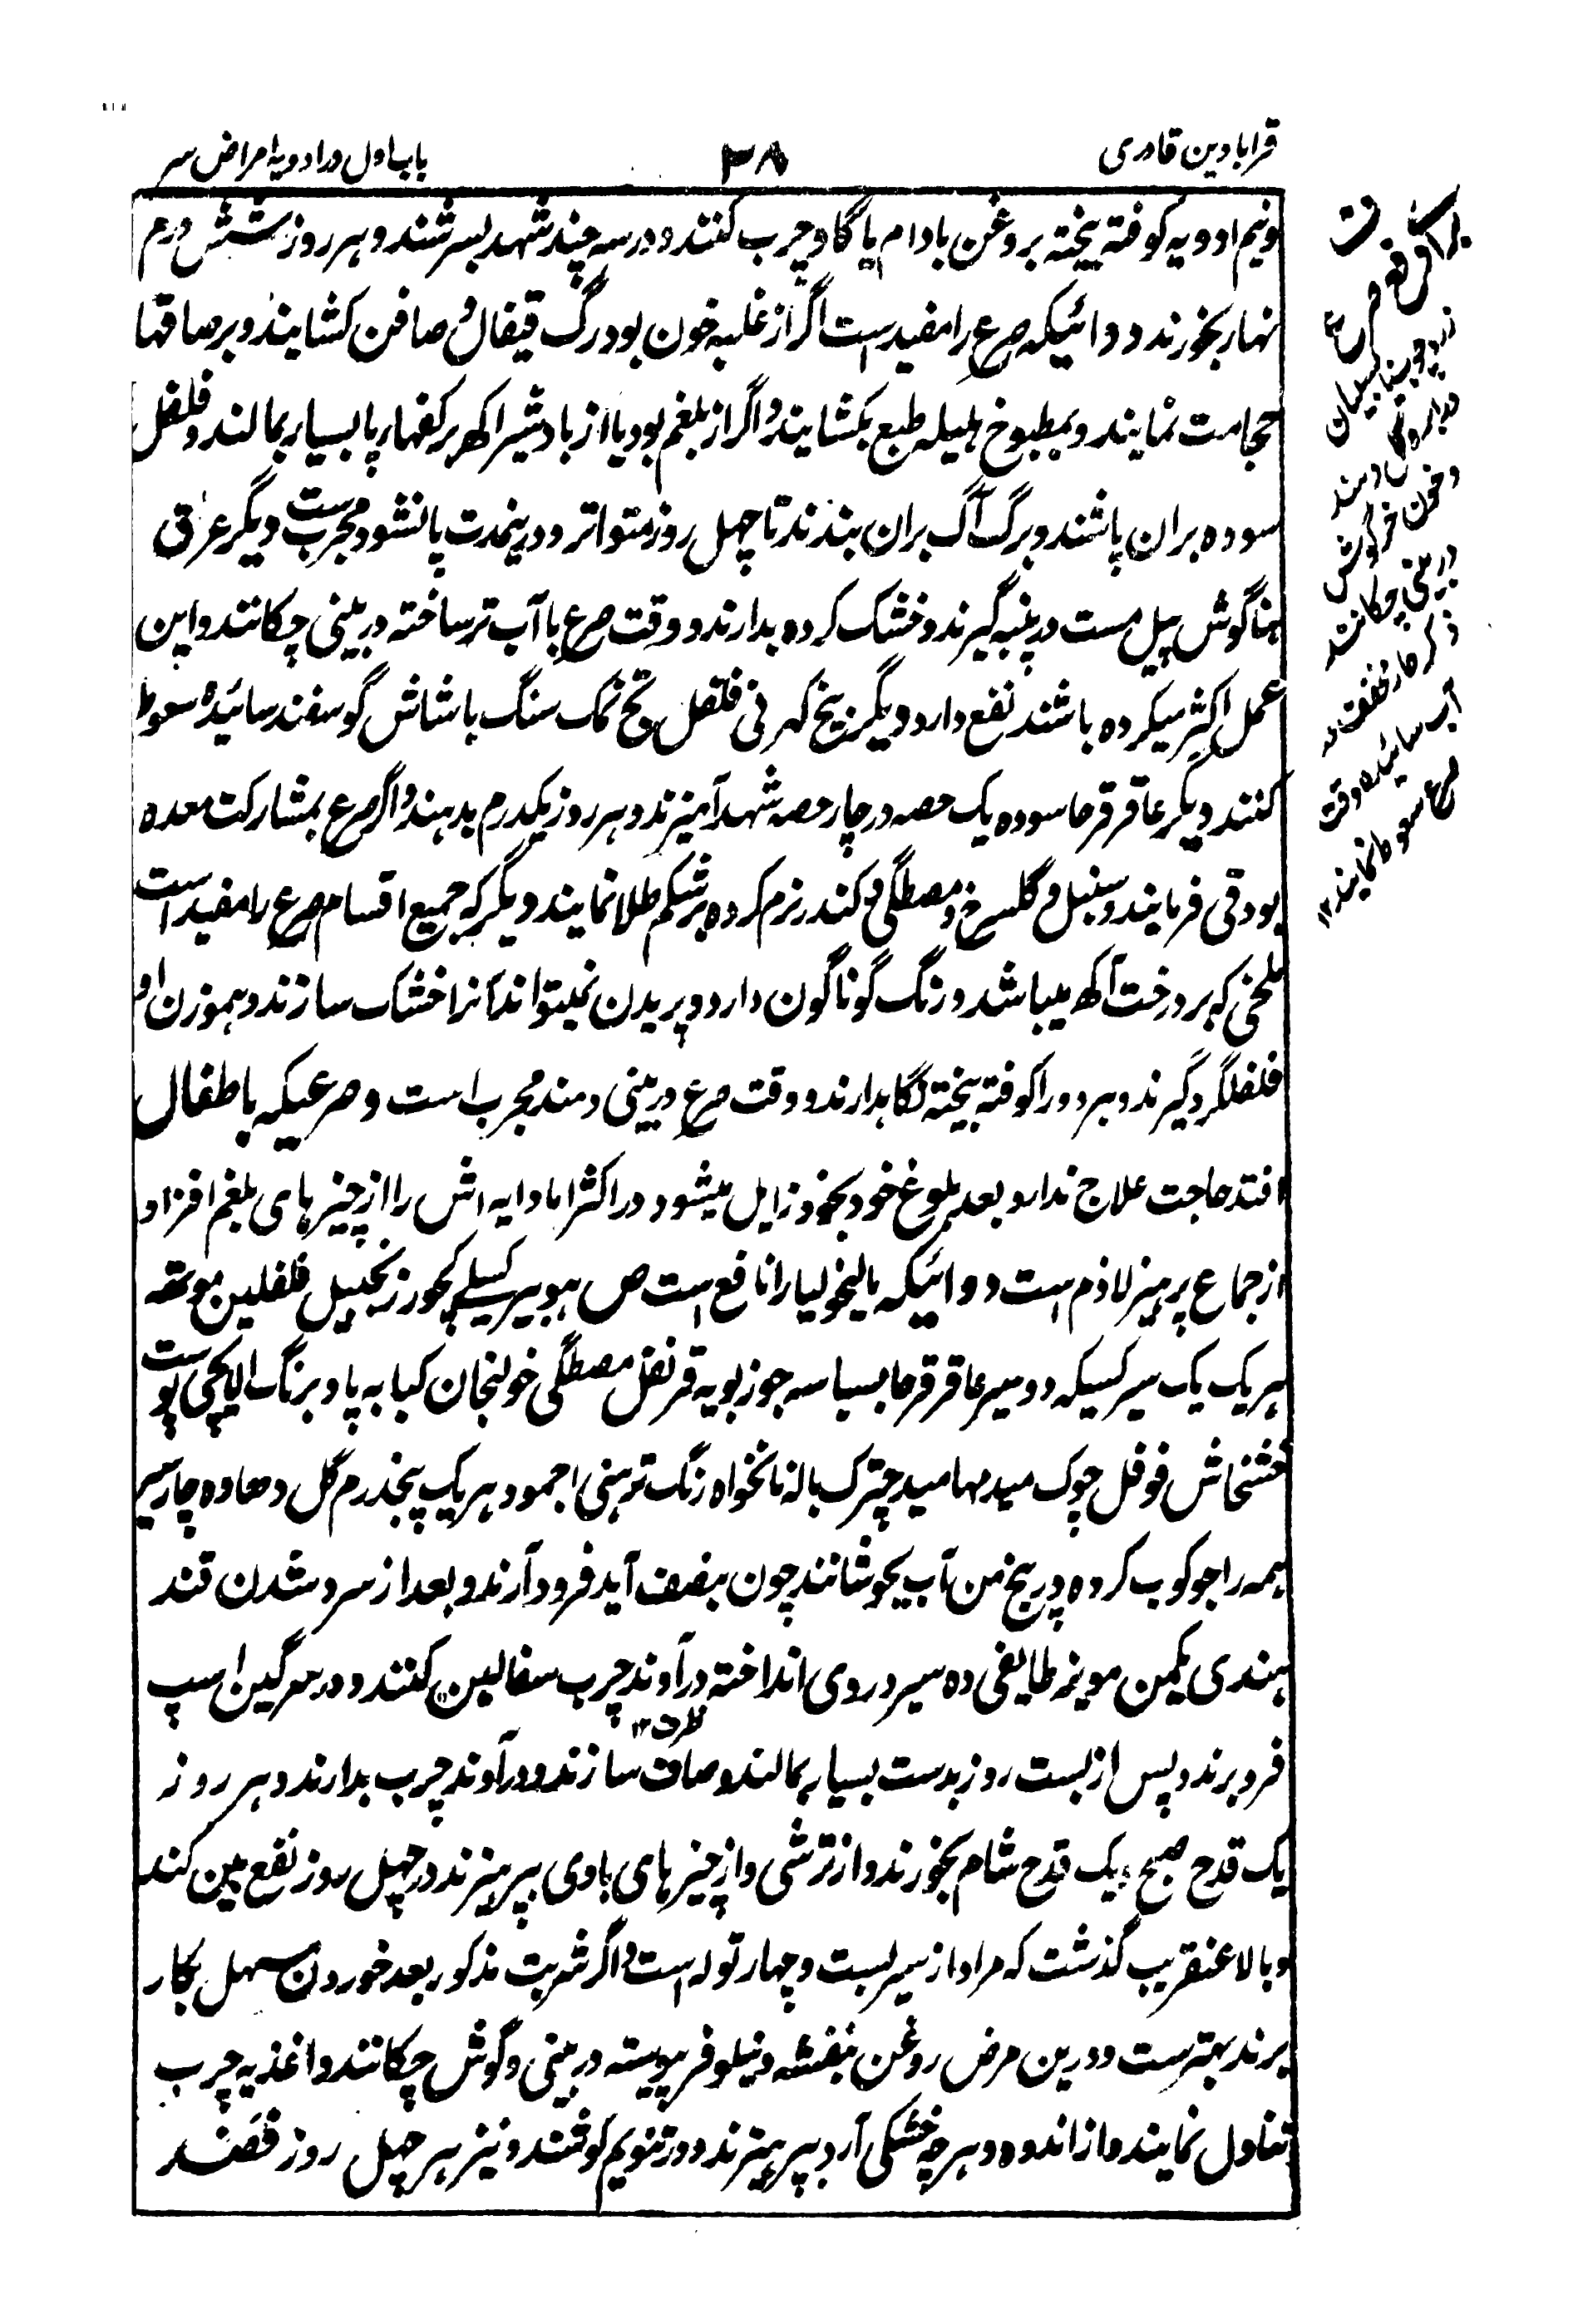 قرابادین قادری
۳۸
باب اول در ادویه امراض سر
ونیم ادویه کوفته بیخته بروغن بادام یا گاو چرب کنند و در سه چند شهد بسرشند و هر روز شش درم
نهار بخورند دوائیکه صرع را مفید است اگر از غلبه خون بود رگ قیفال و صافن کشایند و بر ساقها
حجامت نمایند و بمطبوخ هلیله طبع بکشایند و اگر از بلغم بود یا از باد شیر اکهه بر کفهای پا بسیار بمالند و فلفل
سوده بران پاشند و برگ آگ بران بندند تا چهل روز متواتر و درینمدت پا نشود مجرب ست دیگر عرق
بناگوش پیل مست در پنبه گیرند و خشک کرده بدارند و وقت صرع با آب تر ساخته در بینی چکانند و این
عمل اکثر میکرده باشند نفع دارد دیگر بیخ کهرنی فلفل نمک سنگ باشاش گوسفند سائیده سعوط
کنند دیگر عاقرقرحا سوده یک حصه در چار حصه شهد آمیزند و هر روز یکدرم بدهند و اگر صرع بمشارکت معده
بود قی فرمایند و سنبل و گلسرخ و مصطگی و کندر نرم کرده بر شکم طلا نمایند دیگر که جمیع اقسام صرع را مفید است
ملخی که بر درخت آکهه میباشد و رنگ گوناگون دارد و پریدن نمیتواند آنرا خشک سازند و هموزن او
فلفلگرد گیرند و هر دو را کوفته بیخته نگاهدارند و وقت صرع در بینی دمند مجرب است و صرعیکه باطفال
افتد حاجت علاج ندارد بعد بلوغ خود بخود زایل میشود در اکثر اما دایه اش را از چیز های بلغم افزا و
از جماع پرهیز لازم است دوائیکه مالیخولیا را نافع است ص هوبیر کسیلے کچور زنجبیل فلفلین موتهه
هر یک یک سیر کسیکه دو سیر عاقرقرحا بسباسه جوز بویه قرنفل مصطگی خولنجان کبابه پاو برنگ الایچی پوست
خشخاش فوفل چوک مید مهامید چترک باله نانخواه زنگ ترهنی اجمود هر یک پنجدرم گل دهاوه چار سیر
همه را جوکوب کرده در پنج من آب بجوشانند چون بنصف آید فرود آرند و بعد از سرد شدن قند
هندی یکمن مویز طایفی ده سیر در وی انداخته در آوند چرب سفالین کنند و در سرگین اسپ
ظرف ۱۲
فرو برند و پس از بست روز بدست بسیار بمالند و صاف سازند و در آوند چرب بدارند و هر روز
یک قدح صبح و یک قدح شام بخورند و از ترشی و از چیز های بادی بپرهیزند در چهل روز نفع مبین کند
و بالا عنقریب گذشت که مراد از سیر بست و چهار توله است و اگر شربت مذکور بعد خوردن مسهل بکار
برند بهترست و درین مرض روغن بنفشه و نیلوفر پیوسته در بینی و گوش چکانند و اغذیه چرب
تناول نمایند و از اندوه و هر چه خشکی آرد بپرهیزند و در تنویم کوشند و نیز هر چهل روز فصد
برای دفع صرع
دمند
و خون خرگوش
در بینی چکانند
آب سائیده وقت
صرع سعوط نمایند ۱۲